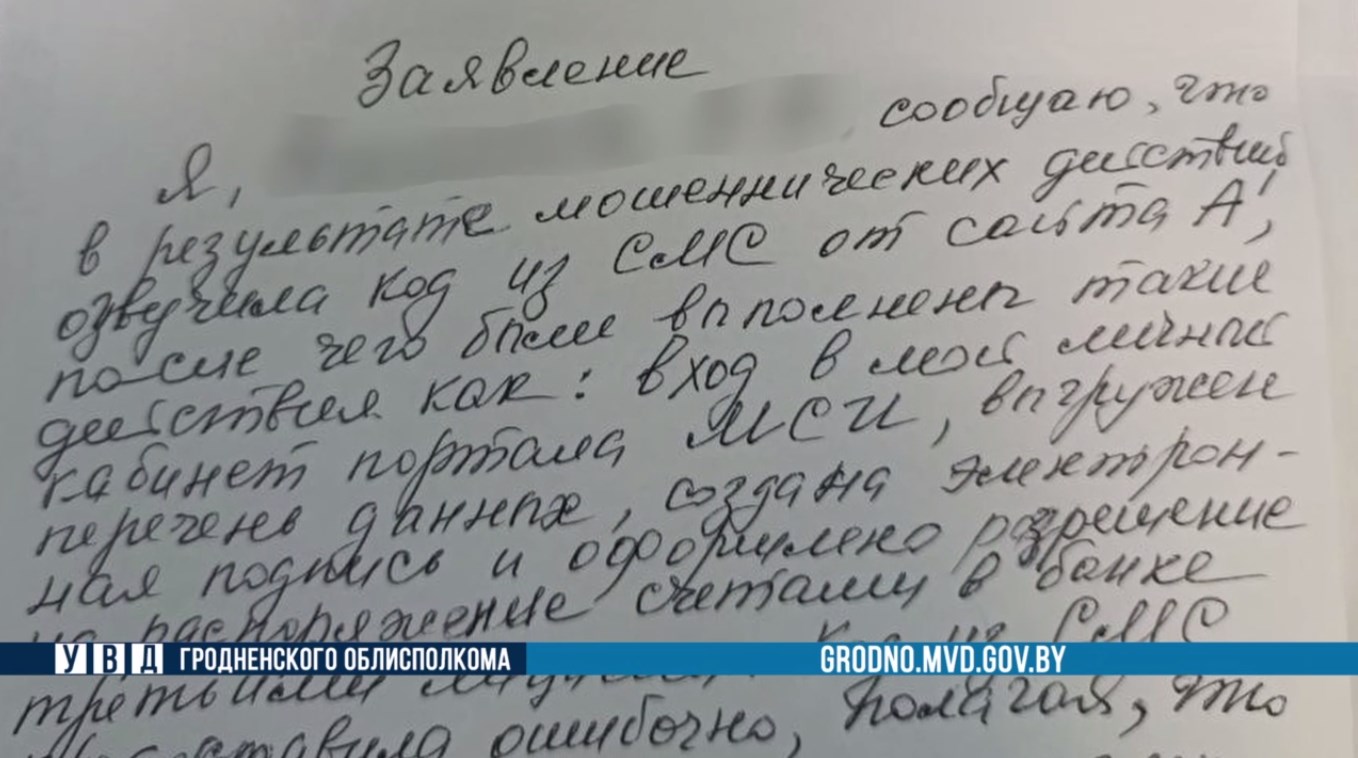 Заявление
Я, сообщаю, что
в результате мошеннических действий
озвучила код из СМС от сайта А1,
после чего были выполнены такие
действия как: вход в мой личный
кабинет портала МСИ, выгружен
перечень данных, создана электрон-
ная подпись и оформлено разрешение
на распоряжение счетами в банке
третьими код из СМС
ошибочно, полагая, что
УВД ГРОДНЕНСКОГО ОБЛИСПОЛКОМА
GRODNO.MVD.GOV.BY